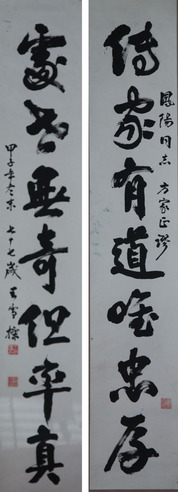 傳家有道唯忠厚
陽同志 方家正謬
處世無奇但率真
甲子年冬末 七十七歲 王雪樵